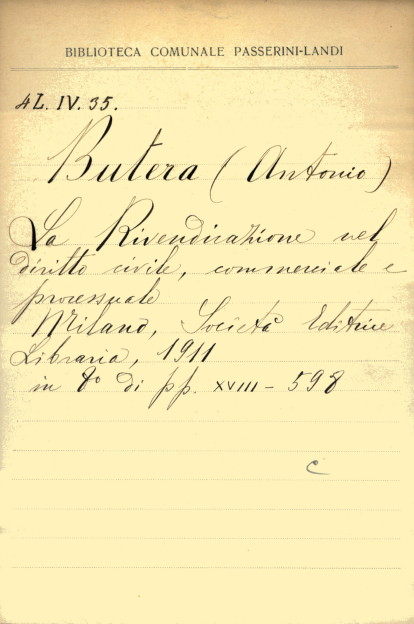 BIBLIOTECA COMUNALE PASSERINI-LANDI
4L. IV. 35.
Butera (Antonio)
La Rivendicazione nel
diritto civile, commerciale e
processuale
Milano, Società Editrice
Libraria, 1911
in 8° di pp. XVIII - 598
c